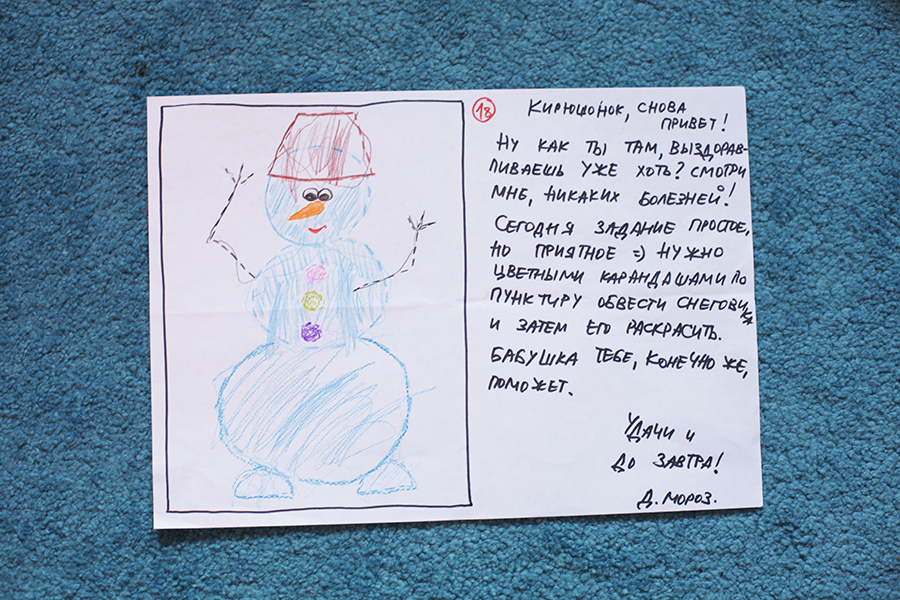 18
Кирюшонок, снова
привет!
Ну как ты там, выздорав-
ливаешь уже хоть? Смотри
мне, никаких болезней!
Сегодня задание простое,
но приятное =) Нужно
цветными карандашами по
пунктиру обвести снеговика
и затем его раскрасить.
Бабушка тебе, конечно же,
поможет.
Удачи и
до завтра!
Д. Мороз.